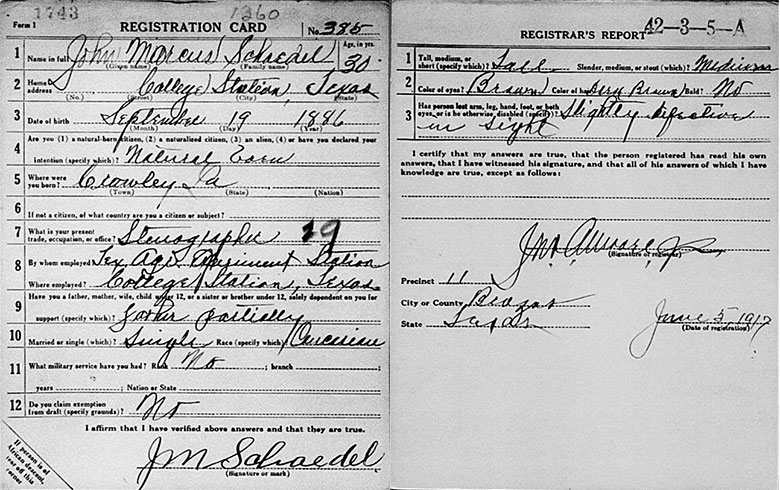 1743 1360
Form 1 REGISTRATION CARD No. 385
1 Name in full John Marcus Schaedel Age, in yrs. 30
(Given name) (Family name)
2 Home address College Station, Texas
(No.) (Street) (City) (State)
3 Date of birth September 19 1886
(Month) (Day) (Year)
4 Are you (1) a natural-born citizen, (2) a naturalized citizen, (3) an alien, (4) or have you declared your
intention (specify which)? Natural Born
5 Where were you born? Crowley La
(Town) (State) (Nation)
6 If not a citizen, of what country are you a citizen or subject?
7 What is your present trade, occupation, or office? Stenographer 19
8 By whom employed? Tex Agr Station
Where employed? College Station, Texas
9 Have you a father, mother, wife, child under 12, or a sister or brother under 12, solely dependent on you for
support (specify which)? partially
10 Married or single (which)? Single Race (specify which)? Caucasian
11 What military service have you had? Rank No ; branch ;
years ; Nation or State
12 Do you claim exemption from draft (specify grounds)? No
I affirm that I have verified above answers and that they are true.
If person is of
African descent,
tear off this
corner
J M Schaedel
(Signature or mark)
42-3-5-A
REGISTRAR'S REPORT
1 Tall, medium, or short (specify which)? Tall Slender, medium, or stout (which)? Medium
2 Color of eyes? Brown Color of hair? Brown Bald? No
3 Has person lost arm, leg, hand, foot, or both
eyes, or is he otherwise, disabled (specify)? Slightly defective
in sight
I certify that my answers are true, that the person registered has read his own
answers, that I have witnessed his signature, and that all of his answers of which I have
knowledge are true, except as follows:
(Signature of registrar)
Precinct 11
City or County Brazos
State Texas
June 5 1917
(Date of registration)